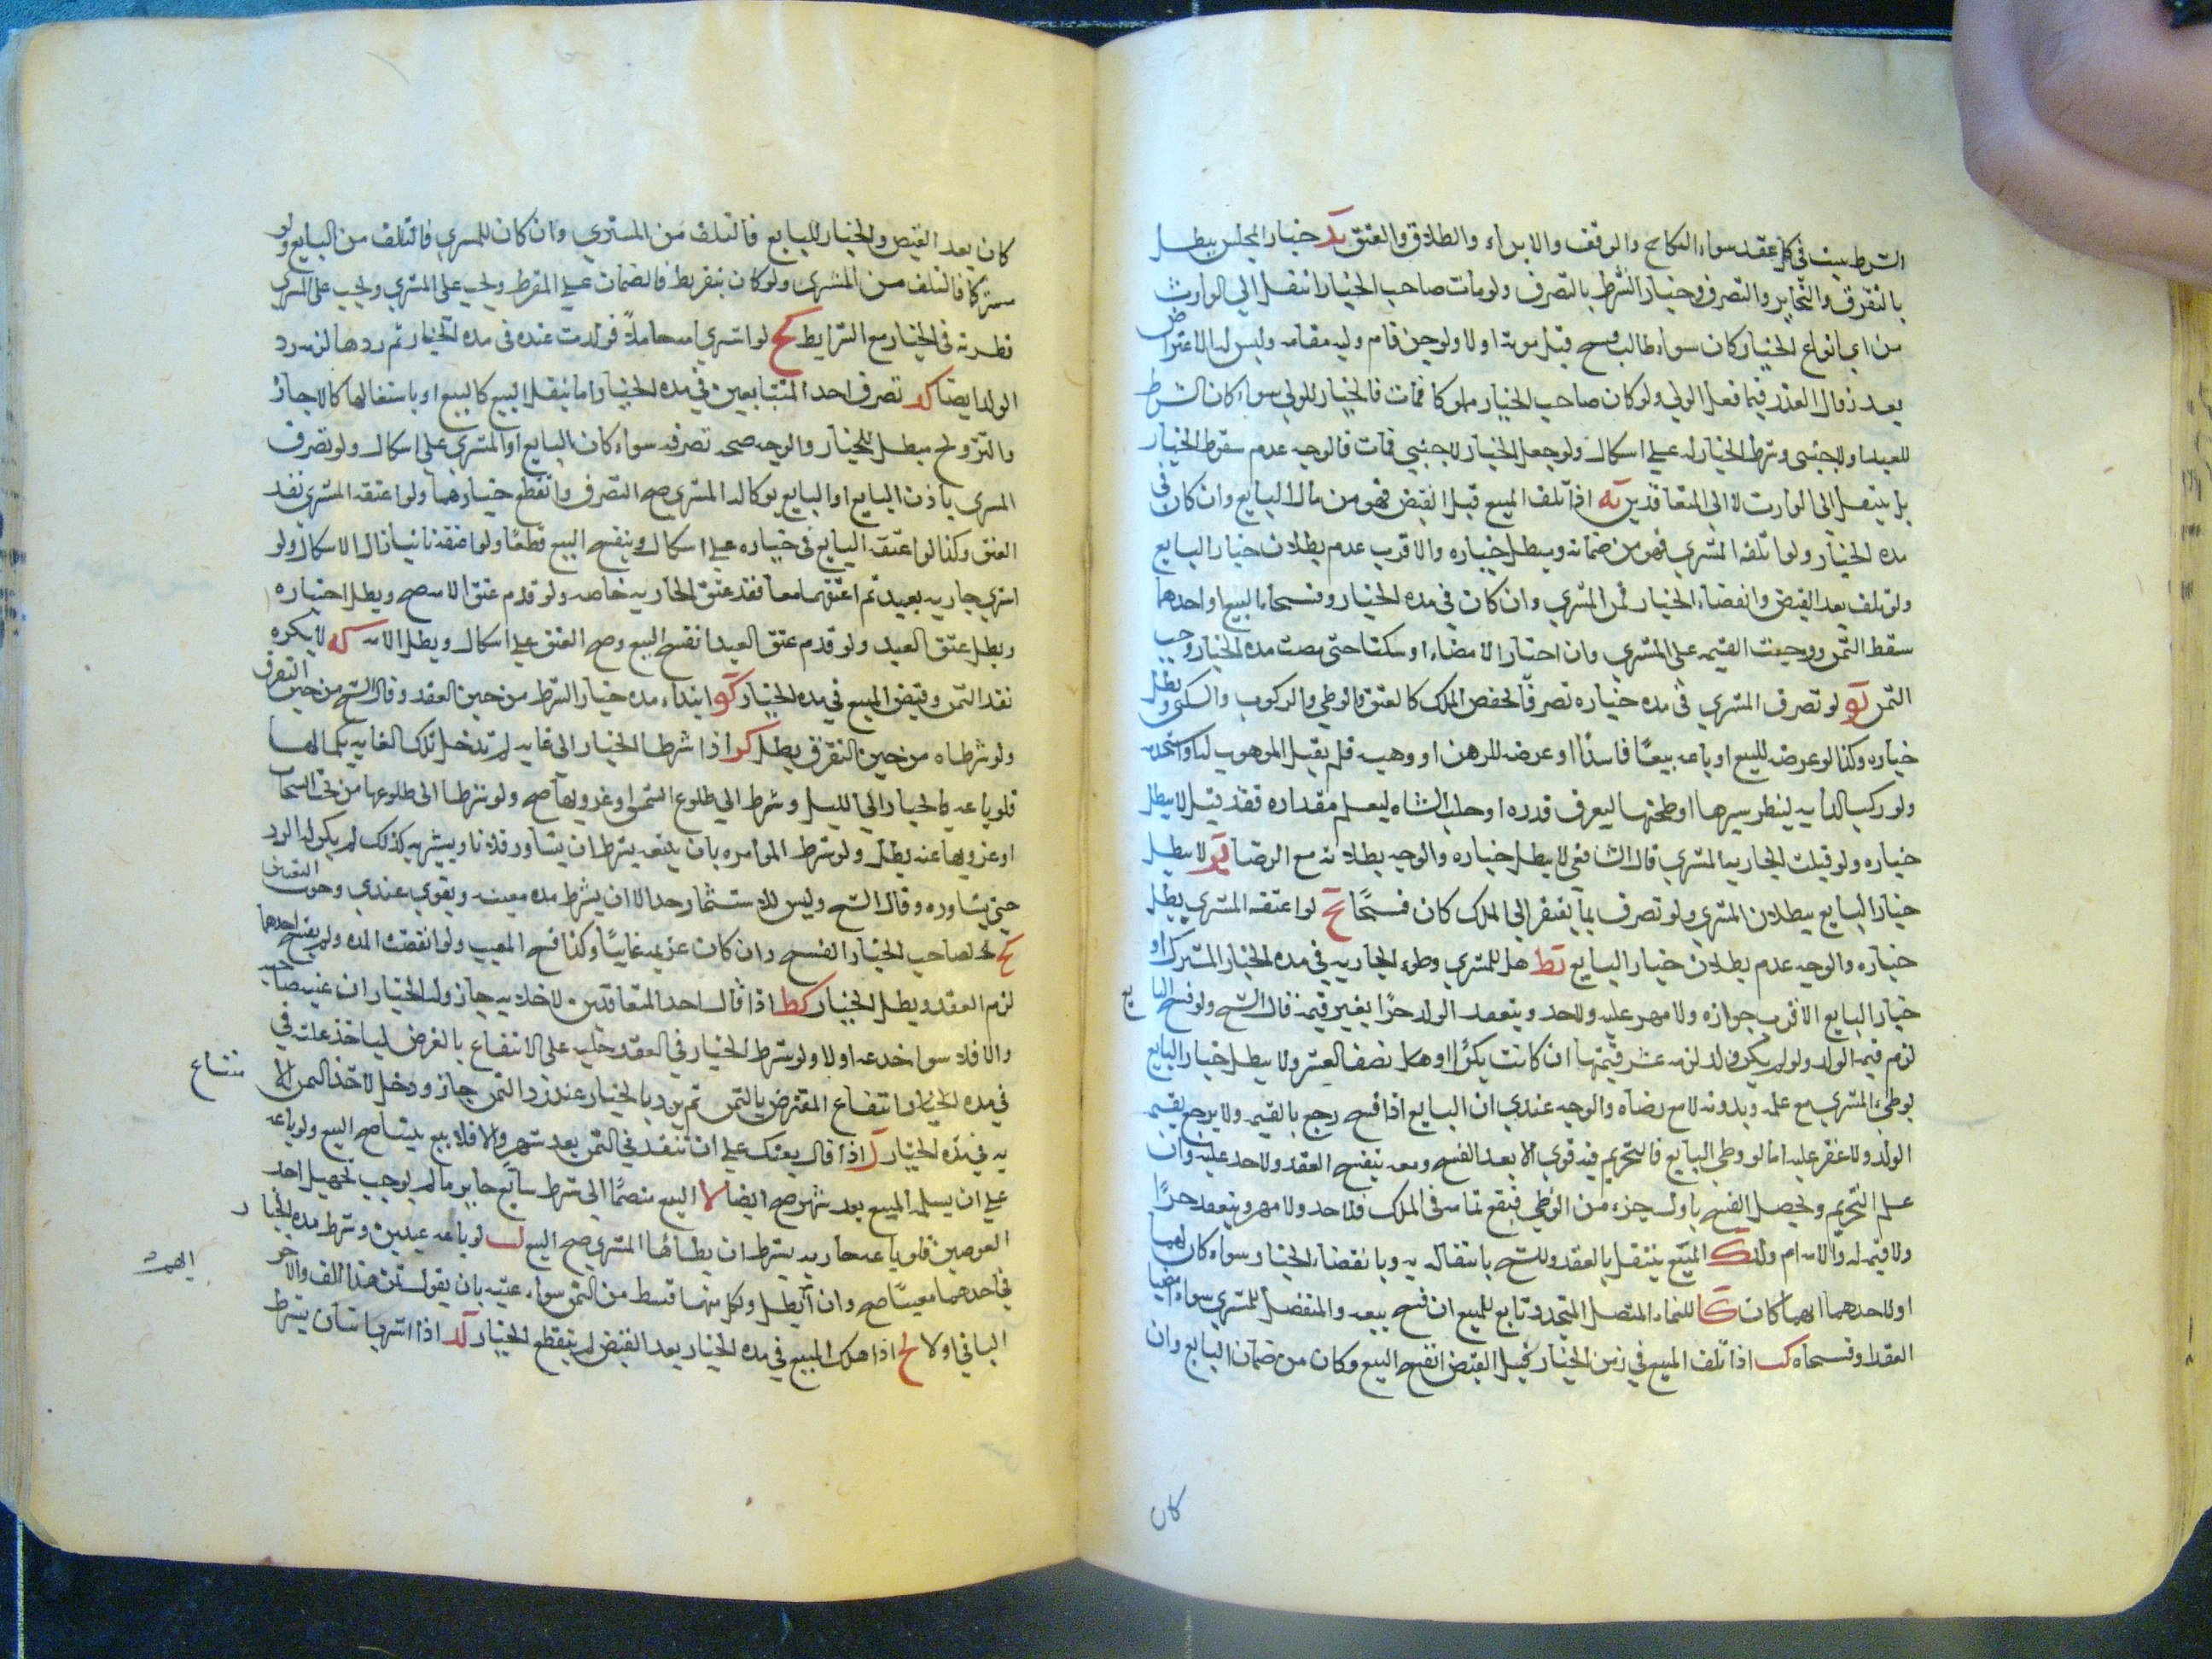 الشرط يثبت فى كل عقد سواء النكاح والوقف والابراء والطلاق والعتق يد خيار المجلس يبطل
بالتفرق والتخاير والتصرف وخيار الشرط بالتصرف ولو مات صاحب الخيار انتقل الي الوارث
من اي انواع الخيار كان سواء طالب بفسح قبل موته او لا ولو جن قام وليه مقامه وليس له الاعتراض
بعد زوال العذر فيما فعل الولي ولو كان صاحب الخيار مملوكا فمات فالخيار للولى سواء كان الشرط
للعبد او لاجنبى وشرط الخيار له علي اشكال ولو جعل الخيار لاجنبي فمات فالوجه عدم سقوط الخيار
بل ينتقل الى الوارث لا الى المتعاقدين يه اذا تلف المبيع قبل القبض فهو من مال البايع وان كان فى
مده الخيار ولو اتلفه المشري فهو من ضمانه ويبطل خياره والاقرب عدم بطلان خيار البايع
ولو تلف بعد القبض وانقضاء الخيار فمن المشري وان كان في مده الخيار وفسحا البيع او احدهما
سقط الثمن ووجبت القيمه على المشري وان اختار الامضاء او سكتا حتى مضت مده الخيار وجب
الثمن يو لو تصرف المشري فى مده خياره تصرفا يختص الملك كالعتق والوطي والركوب والسكنى بطل
خياره وكذا لو عرضه للبيع او باعه بيعا فاسدا او عرضه للرهن او وهبه فلم يقبل الموهوب له او استخدمه
ولو ركب الدابه لينظر سيرها او طحنها ليعرف قدره او حلب الشاه ليعلم مقداره فقد قيل لا يبطل
خياره ولو قبلت الجاريه المشري قال الشافعي لا يبطل خياره والوجه بطلانه مع الرضا يز لا يبطل
خيار البايع ببطلان المشري ولو تصرف بما يفتقر الى الملك كان فسخا يح لو اعتقه المشري بطل
خياره والوجه عدم بطلان خيار البايع يط هل للمشري وطء الجاريه في مده الخيار المشترك او
خيار البايع الاقرب جوازه ولا مهر عليه ولا حد وينعقد الولد حرا بغير قيمة قال الشيخ ولو فسح البايع
لزم قيمه الولد ولو لم يكن ولد لزمه عشر قيمتها ان كانت بكرا او هل نصف العشر ولا يبطل خيار البايع
بوطىء المشري مع علمه وبدونه لا مع رضاه والوجه عندي ان البايع اذا فسح رجع بالقيمه ولا يرجع بقيمه
الولد ولا عقر عليه اما لو وطي البايع فالتحريم فيه قوي الا بعد الفسح ومعه ينفسح العقد ولا حد عليه وان
علم التحريم ويحصل الفسح باول جزء من الوطي فيقع تمامه فى الملك فلا حد ولا مهر وينعقد حرا
ولا قيمه له والامه ام ولد ك المبيع ينتقل بالعقد وللشيخ بانتقاله به وبانقضاء الخيار سواء كان لهما
او لاحدهما ايهما كان كا النماء المتصل المتجدد تابع للمبيع ان فسح بيعه والمنفصل للمشري سواء امضيا
العقد او فسحاه كب اذا تلف المبيع في زمن الخيار قبل القبض انفسح البيع وكان من ضمان البايع وان
كان
كان بعد القبض والخيار للبايع فالتلف من المشتري وان كان للمسري فالتلف من البايع ولو
مشتركا فالتلف من المشرى ولو كان بتفريط فالضمان علي المفرط ويجب على المشري ويجب على المشري
فطرته فى الخيار مع الشرايط كح لو اشترى امه حاملا فولدت عنده فى مده الخيار ثم ردها لزمه رد
الولد ايضا كد تصرف احد المتبايعين في مده الخيار اما بنقل البيع كالبيع او باستغالها كالاجاره
والتزويج مبطل للخيار والوجه صحه تصرفه سواء كان البايع او المشري على اشكال ولو تصرف
المسري باذن البايع او البايع بوكاله المشري صح التصرف وانقطع خيارهما ولو اعتقه المشري نفذ
العتق وكذا لو اعتقه البايع فى خياره علي اشكال وينفسح البيع قطعا ولو اعتقه ثانيا زال الاشكال ولو
اشري جاريه بعبد ثم اعتقهما معا فقد عتق الجاريه خاصه ولو قدم عتق الامه صح وبطل اختياره
وبطل عتق العبد ولو قدم عتق العبد انفسح البيع وصح العتق علي اشكال وبطل الامه كه لا يكره
نقد الثمن وقبض المبيع في مده الخيار كو ابتداء مده خيار الشرط من حين العقد وقال الشيخ من حين التفرق
ولو شرطاه من حين التفرق بطل كز اذا شرطا الخيار الي غايه لم تدخل تلك الغايه بكمالها
فلو باعه بالخيار الي الليل وشرط الي طلوع الشمس او غروبها صح ولو شرطا الى طلوعها من تحت السحاب
او غروبها عنه بطل ولو شرط الموامره بان يبتعه بشرط ان يشاور فلانا ويشريه كذلك لم يكن له الرد
حتى يشاوره وقال الشيخ وليس للاستثمار حد الا ان يشرط مده معينه ويقوي عندي وجوب التعيين
كح لصاحب الخيار الفسح وان كان غريمه غايبا وكذا فسح المعيب ولو انقضت المده ولم يفسح احدهما
لزم العقد وبطل الخيار كط اذا قال احد المتعاقدين لا خلابه جاز وله الخيار ان غبنه صاحبه
والا فلا سوا خدعه او لا ولو شرط الخيار في العقد حيله على الانتفاع بالقرض لياخذ غلته في
في مده الخيار وانتفاع المقترض بالثمن ثم يرد بالخيار عند رد الثمن جاز ودخل لاخذ الثمن الا
نتفاع
به في مده الخيار ل اذا قال بعتك علي ان تنقد في الثمن بعد شهر والا فلا بيع بيننا صح البيع ولو باعه
علي ان يسلم المبيع بعد شهر صح ايضا لا البيع منضما الى شرط سايغ جايز ما لم يوجب تجهيل احد
العوضين فلو باعه جاريه بشرط ان يطاها المشري صح البيع لب لو باعه عبدين وشرط مده الخيار
في احدهما معينا صح وان ابهم بطل ولكل منهما قسط من الثمن سواء عينه بان يقول ثمن هذا الف والاخر
ابهمت
الباقي او لا لح اذا هلك المبيع في مده الخيار بعد القبض لم ينقطع الخيار لد اذا اشتريا شيئا بشرط